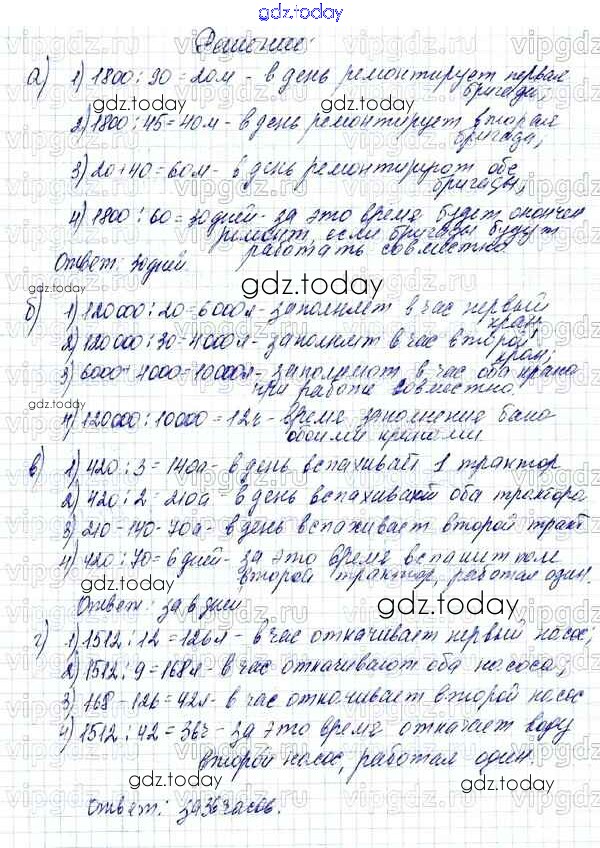 gdz.today
Решение:
а) 1) 1800 : 90 = 20м - в день ремонтирует первая
бригада;
gdz.today
2) 1800 : 45 = 40м - в день ремонтирует вторая
бригада;
3) 20 + 40 = 60м - в день ремонтируют обе
бригады;
gdz.today
4) 1800 : 60 = 30 дней - за это время будет окончен
ремонт, если бригады будут
работать совместно
Ответ: 30 дней.
gdz.today
б) 1) 120000 : 20 = 6000л - заполняет в час первый
кран;
2) 120000 : 30 = 4000л - заполнит в час второй
кран;
3) 6000 + 4000 = 10000л - заполняют в час оба крана
при работе совместно.
gdz.today
4) 120000 : 10000 = 12ч - время заполнение бака
обоими кранами
в) 1) 420 : 3 = 140а - в день вспахивает 1 трактор
2) 420 : 2 = 210а - в день вспахивают оба трактора
3) 210 - 140 = 70а - в день вспахивает второй тракт
4) 420 : 70 = 6 дней - за это время вспашит поле
второй трактор, работая один.
gdz.today
Ответ: за 6 дней
gdz.today
г) 1) 1512 : 12 = 126л - в час откачивает первый насос;
2) 1512 : 9 = 168л - в час откачивают оба насоса;
gdz.today
3) 168 - 126 = 42л - в час откачивает второй насос
4) 1512 : 42 = 36ч - за это время откачает воду
второй насос, работая один.
gdz.today
gdz.today
Ответ: за 36 часов.